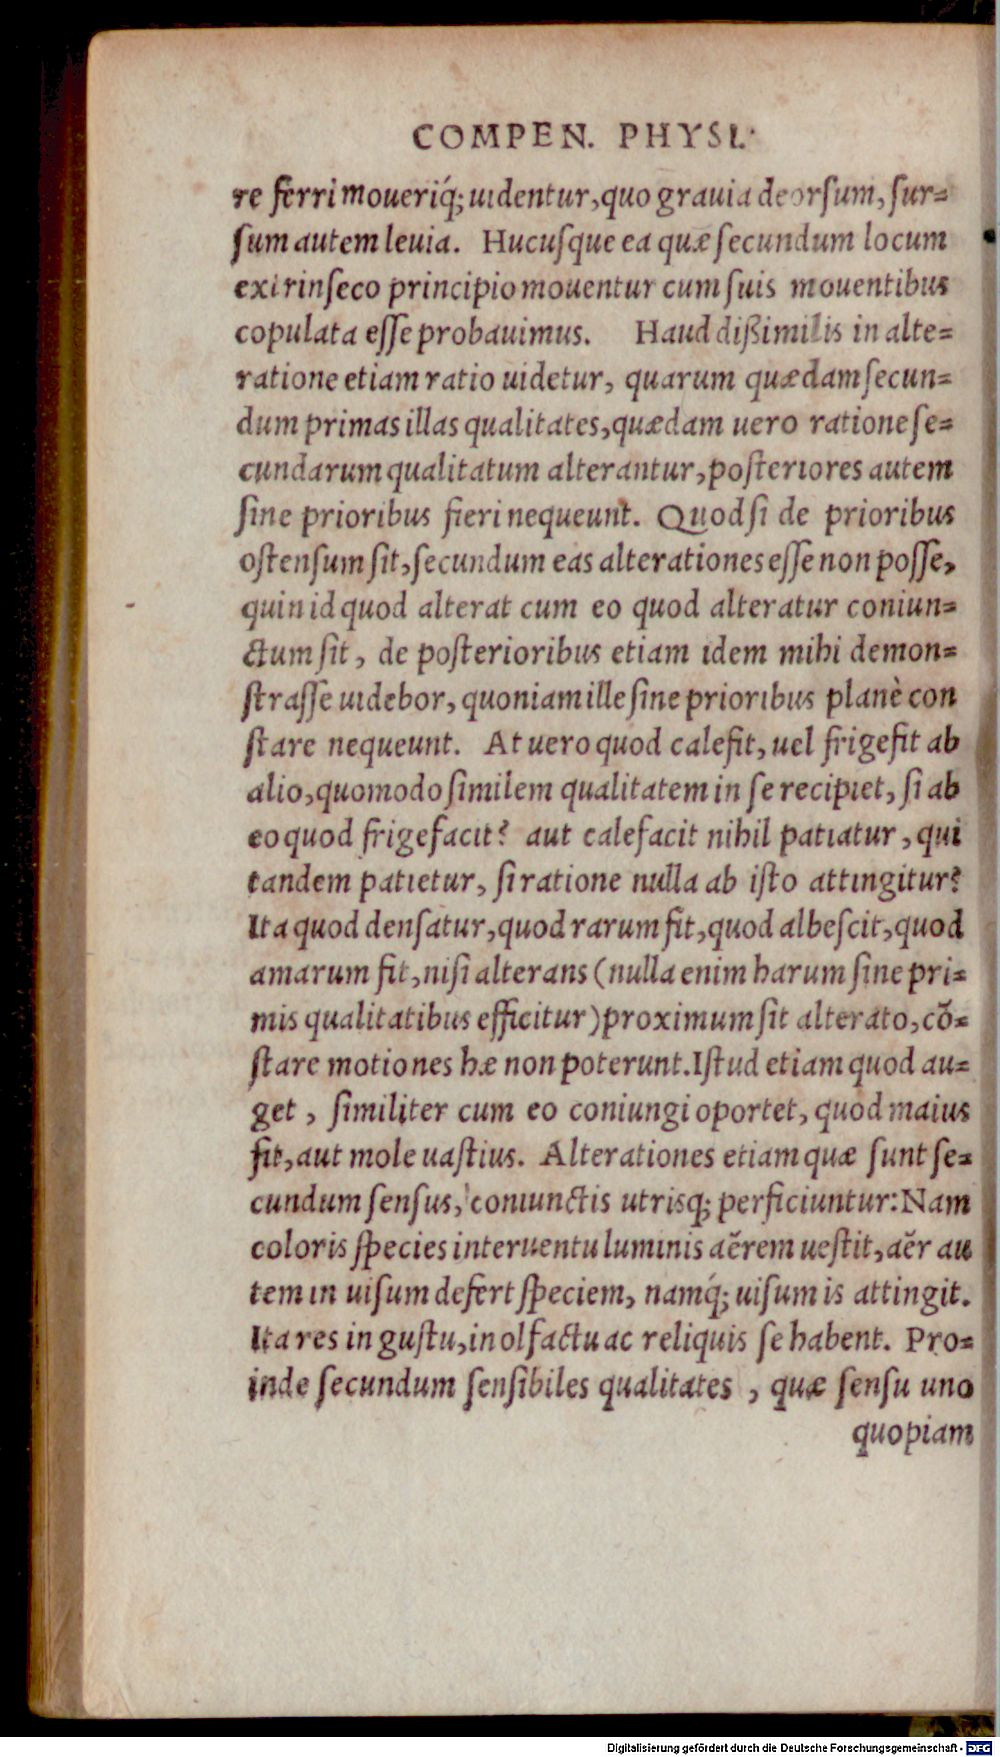 COMPEN. PHYSI.
re ferri moueriq́; uidentur, quo grauia deorſum, ſur=
ſum autem leuia. Hucuſque ea quæ ſecundum locum
extrinſeco principio mouentur cum ſuis mouentibus
copulata eſſe probauimus. Haud diſſimilis in alte=
ratione etiam ratio uidetur, quarum quædam ſecun=
dum primas illas qualitates, quædam uero ratione ſe=
cundarum qualitatum alterantur, poſteriores autem
ſine prioribus fieri nequeunt. Quod ſi de prioribus
oſtenſum ſit, ſecundum eas alterationes eſſe non poſſe,
quin id quod alterat cum eo quod alteratur coniun=
ctum ſit, de poſterioribus etiam idem mihi demon=
ſtraſſe uidebor, quoniam ille ſine prioribus planè con
ſtare nequeunt. At uero quod calefit, uel frigefit ab
alio, quomodo ſimilem qualitatem in ſe recipiet, ſi ab
eo quod frigefacit? aut calefacit nihil patiatur, qui
tandem patietur, ſi ratione nulla ab iſto attingitur?
Ita quod denſatur, quod rarum fit, quod albeſcit, quod
amarum fit, niſi alterans (nulla enim harum ſine pri=
mis qualitatibus efficitur) proximum ſit alterato, cō=
ſtare motiones hæ non poterunt. Iſtud etiam quod au=
get, ſimiliter cum eo coniungi oportet, quod maius
fit, aut mole uaſtius. Alterationes etiam quæ ſunt ſe=
cundum ſenſus, coniunctis utrisq; perficiuntur: Nam
coloris ſpecies interuentu luminis aërem ueſtit, aër au
tem in uiſum defert ſpeciem, namq́; uiſum is attingit.
Ita res in guſtu, in olfactu ac reliquis ſe habent. Pro=
inde ſecundum ſenſibiles qualitates, quæ ſenſu uno
quopiam
Digitalisierung gefördert durch die Deutsche Forschungsgemeinschaft - DFG